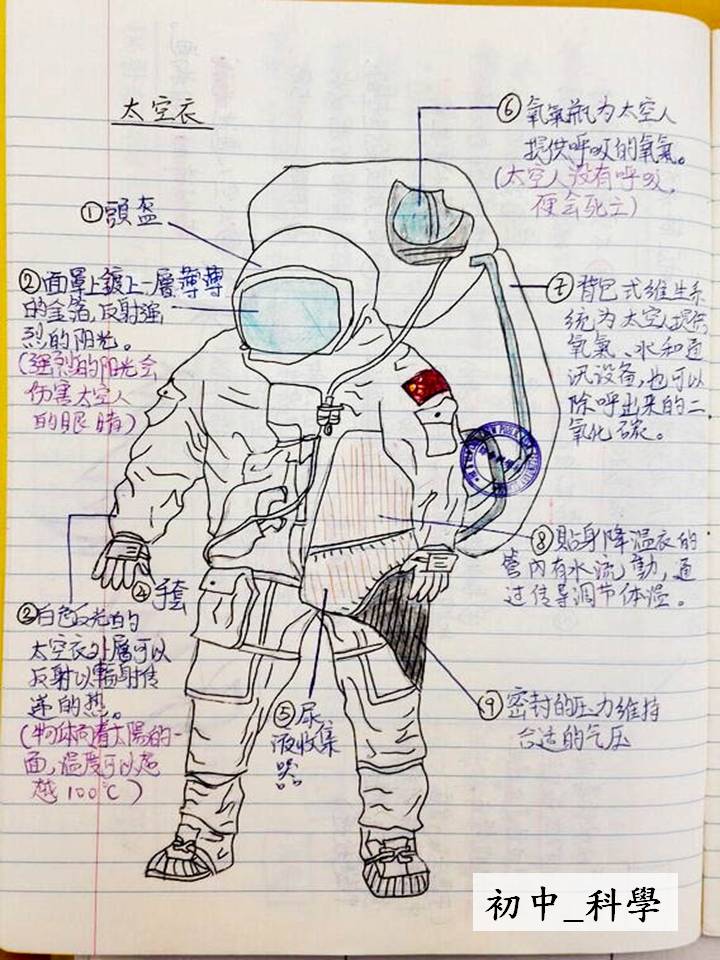 太空衣
①頭盔
②面罩上鍍上一層薄薄
的金箔,反射強
烈的阳光。
(强烈的阳光会
伤害太空人
的眼睛)
③白色反光的
太空衣外層可以
反射以輻射传
递的热。
(物体向着太陽的一
面,温度可以超
越100℃)
④手套
⑤尿
液收集
器
⑥氧氣瓶为太空人
提供呼吸的氧氣。
(太空人没有呼吸,
便会死亡)
⑦背包式维生系
統为太空人提供
氧氣、水和通
汛设备,也可以
除呼出来的二
氧化碳。
⑧貼身降温衣的
管內有水流動,通
过传导调节体温。
⑨密封的压力維持
合适的气压
初中_科學